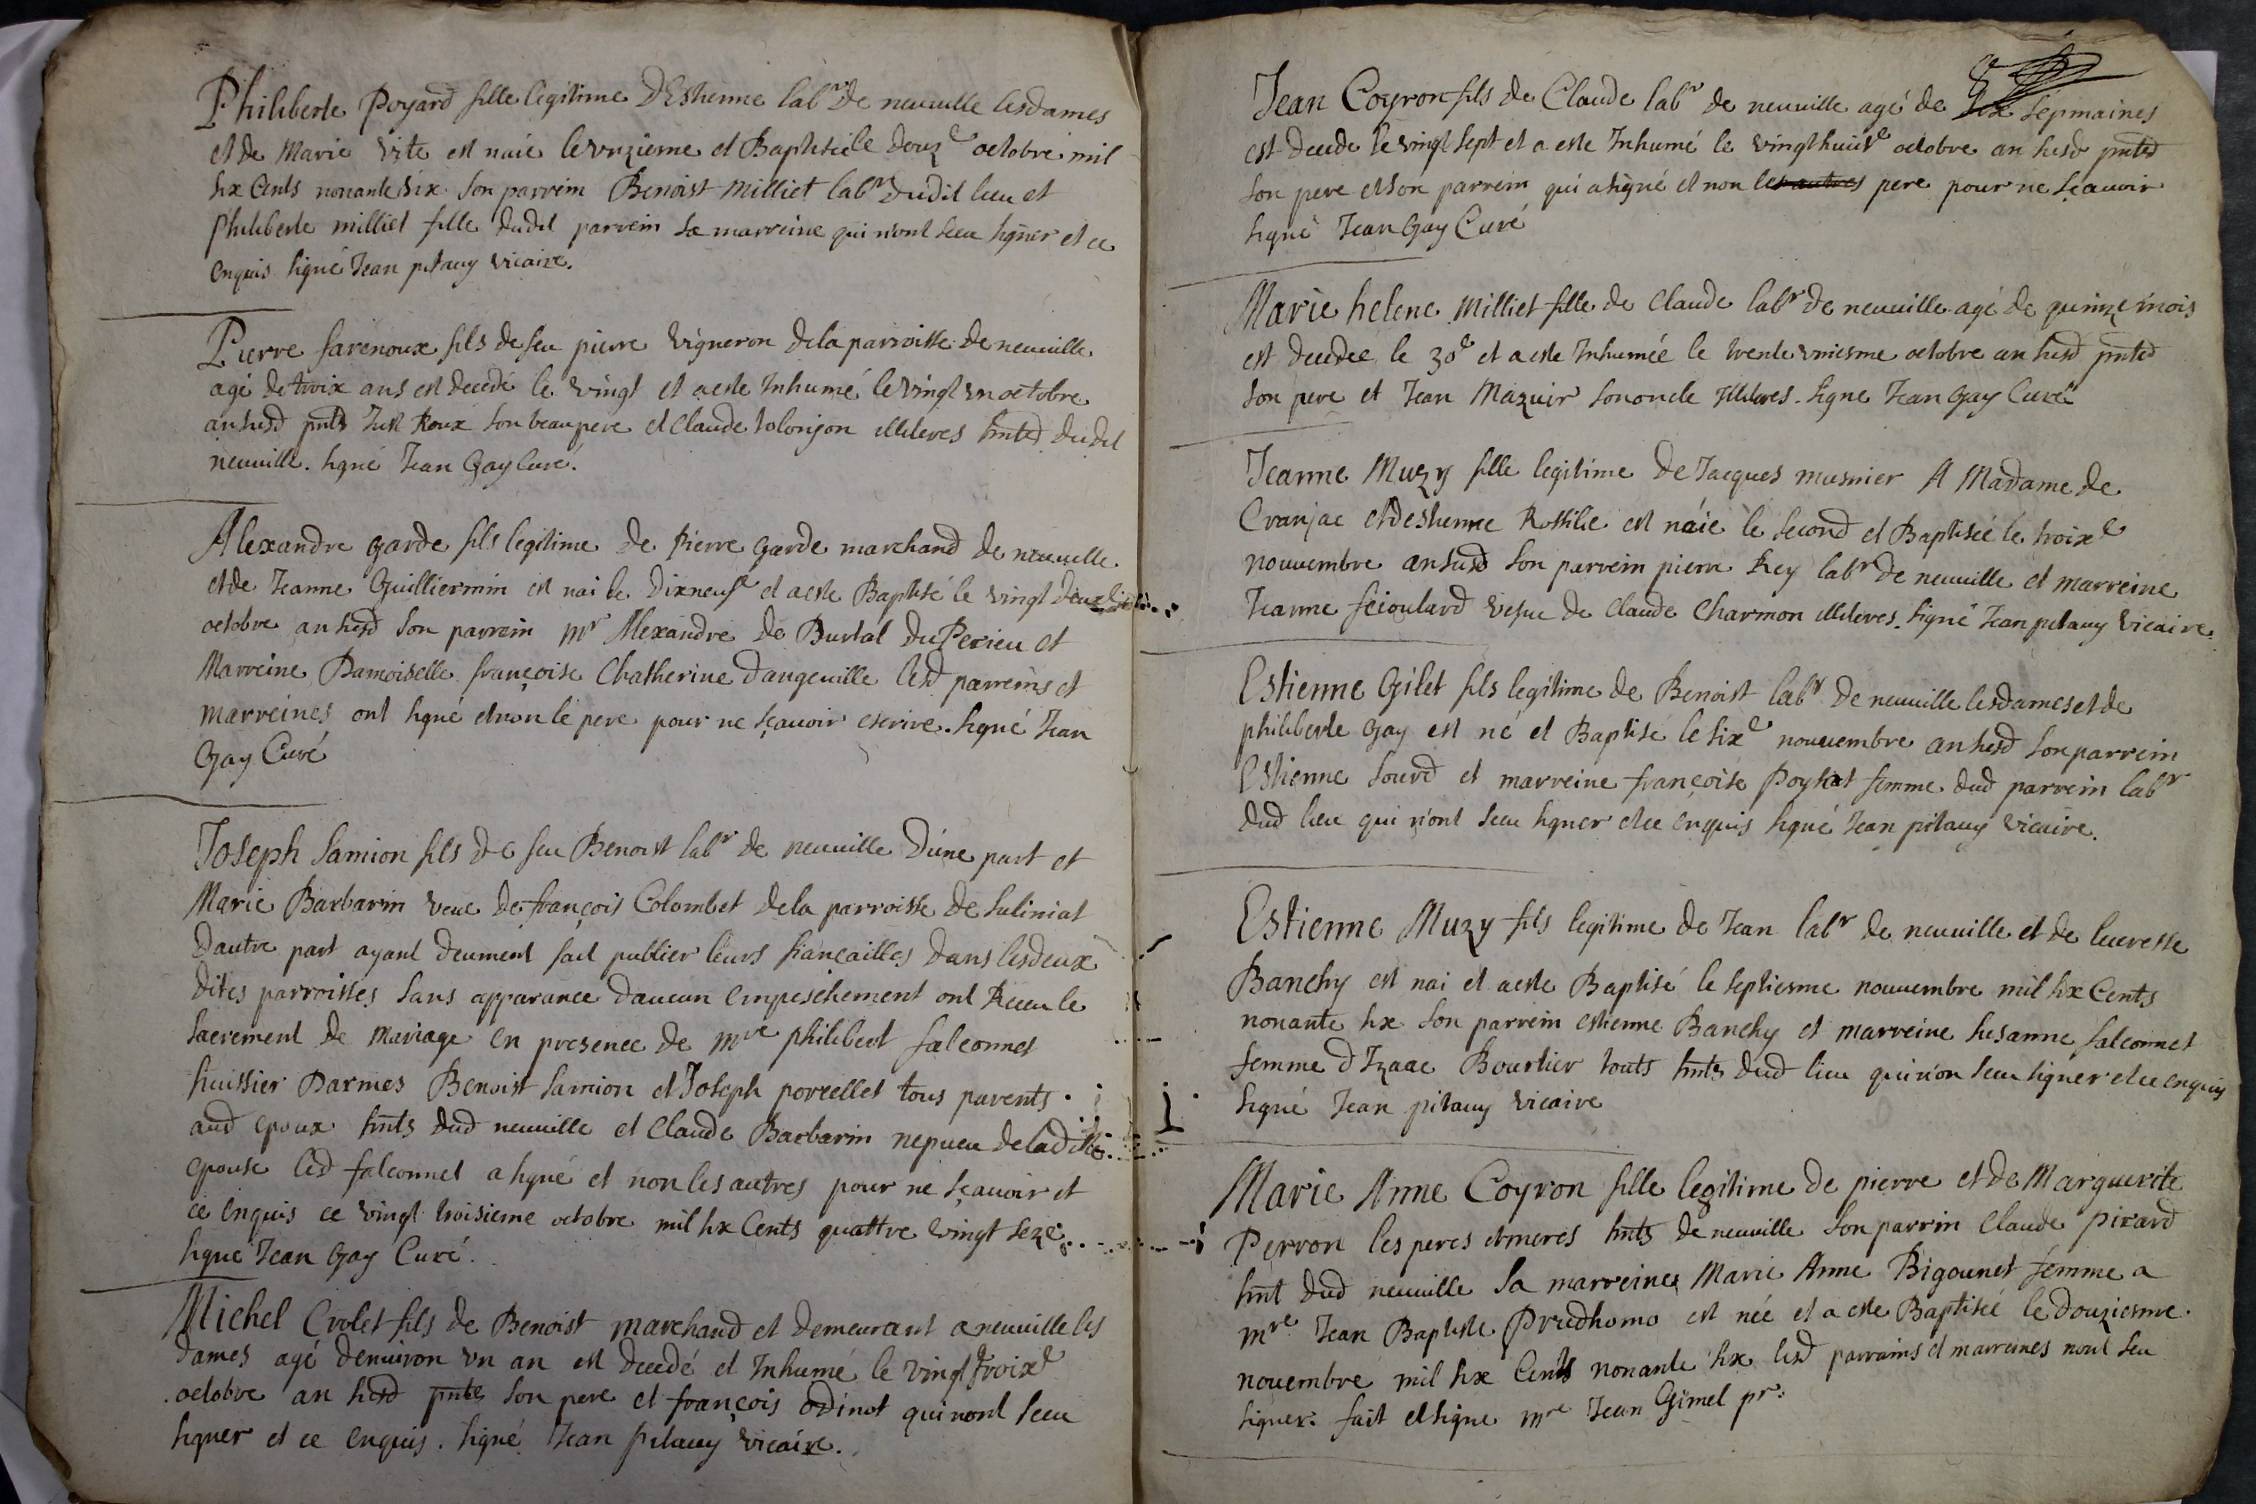 Philiberte Poyard fille legitime D'Estienne lab.r de neuuille lesdames
et de Marie Vite est naié le vnzieme et Baptisée le douz.e octobre mil
six Cents nonante six son parrein Benoist Milliet lab.r dudit lieu et
Philiberte milliet fille dudit parrein sa marreine qui n'ont sceu signer et ce
enquis signé Jean pitauy vicaire.
Pierre farenoux fils de feu pierre vigneron dela parroisse de neuuille
agé de troix ans est decedé le vingt et a este Inhumé le vingt vn octobre
an susd pnts Just Roux son beaupere et Claude tolonjon illiteres hnts dudit
neuuille. signé Jean Gay Curé.
Alexandre garde fils legitime de Pierre garde marchand de neuuille
et de Jeanne Guilliermin est nai le Dixneuf.e et a este Baptisé le vingt deux
octobre an susd son parrein m.r Alexandre de Burtal du Perieu et
Marreine Damoiselle françoise Chatherine dangeuille lesd parreins et
marreines ont signé et non le pere pour ne sçauoir escrire. signé Jean
Gay Curé
Joseph Samion fils de feu Benoist lab.r de neuuille d'une part et
Marie Barbarin veue de françois Colombet dela parroisse de Suliniat
dautre part ayant deument fait publier leurs fiançailles dans lesdeux
dites parroisses sans apparance daucun empeschement ont Receu le
sacrement de mariage en presence de m.re philibert falconnet
huissier Darmes Benoist Samion et Joseph porcellet tous parents
aud epoux hnts dud neuuille et Claude Barbarin nepueu de ladite
epouse led falconnet a signé et non les autres pour ne sçauoir et
ce enquis ce vingt troisieme octobre mil six Cents quattre vingt seze
signé Jean Gay Curé.
Michel Crolet fils de Benoist marchand et demeurant a neuuille les
dames agé denuiron vn an est decedé et Inhumé le vingt troix.e
octobre an susd pnts son pere et françois odinot qui nont sceu
signer et ce enquis. signé Jean pitauy vicaire.
Jean Coyron fils de Claude lab.r de neuuille agé de six sepmaines
est decede le vingt sept et a este Inhumé le vingt huit.e octobre an susd pnts
son pere et son parrein qui a signé et non les autres pere pour ne sçauoir
signé Jean Gay Curé
Marie helene Milliet fille de Claude lab.r de neuuille agé de quinze mois
est decedee le 30.e et a este Inhumée le trente vniesme octobre an susd pnts
son pere et Jean Mazuir son oncle Illiteres. signe Jean Gay Curé
Jeanne Muzy fille legitime de Jacques musnier A Madame de
Cranjac et d'estienne Rossilie est náie le second et Baptisée le troix.e
nouuembre an susd son parrein pierre Rey lab.r de neuuille et marreine
Jeanne feioulard vesue de Claude Charmon illiteres. signé Jean pitauy vicaire.
Estienne Gilet fils legitime de Benoist lab.r de neuuille lesdames et de
philiberte Gay est né et Baptisé le six.e nouuembre an susd son parrein
Estienne Sourd et marreine françoise Poysat femme dud parrein lab.r
dud lieu qui n'ont sceu signer et ce enquis signé Jean pitauy vicaire.
Estienne Muzy fils legitime de Jean lab.r de neuuille et de lucresse
Banchy est nai et a este Baptisé le septiesme nouuembre mil six Cents
nonante six son parrein estienne Banchy et marreine Susanne falconnet
femme d'Izaac Bourlier touts hnts dud lieu qui n'on sceu signer et ce enquis
signé Jean pitauy vicaire
Marie Anne Coyron fille legitime de pierre et de Marguerite
Perron les peres et meres hnts de neuuille son parrin Claude pirard
hnt dud neuuille sa marreine Marie Anne Bigounet femme a
m.re Jean Baptiste Prudhomo est née et a este Baptisée le douziesme
nouembre mil six Cents nonante six lesd parrains et marreines nont seu
signer. fait et signe m.re Jean Gimel p.r